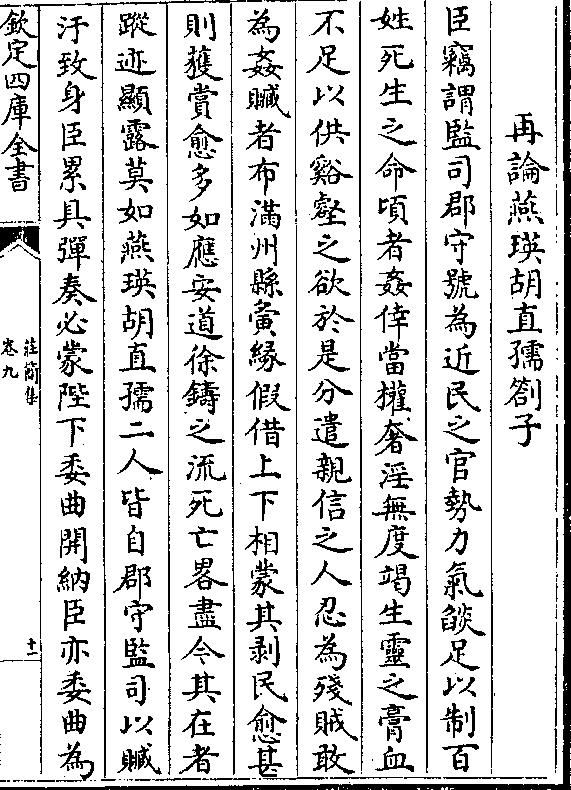 再論燕瑛胡直孺劄子
臣竊謂監司郡守號為近民之官勢力氣燄足以制百
姓死生之命頃者姦倖當權奢淫無度竭生靈之膏血
不足以供谿壑之欲於是分遣親信之人忍為殘賊敢
為姦贓者布滿州縣夤緣假借上下相蒙其剥民愈甚
則獲賞愈多如應安道徐鑄之流死亡畧盡今其在者
蹤迹顯露莫如燕瑛胡直孺二人皆自郡守監司以贓
汙致身臣累具彈奏必蒙陛下委曲開納臣亦委曲為
欽定四庫全書
莊簡集
卷九
十一